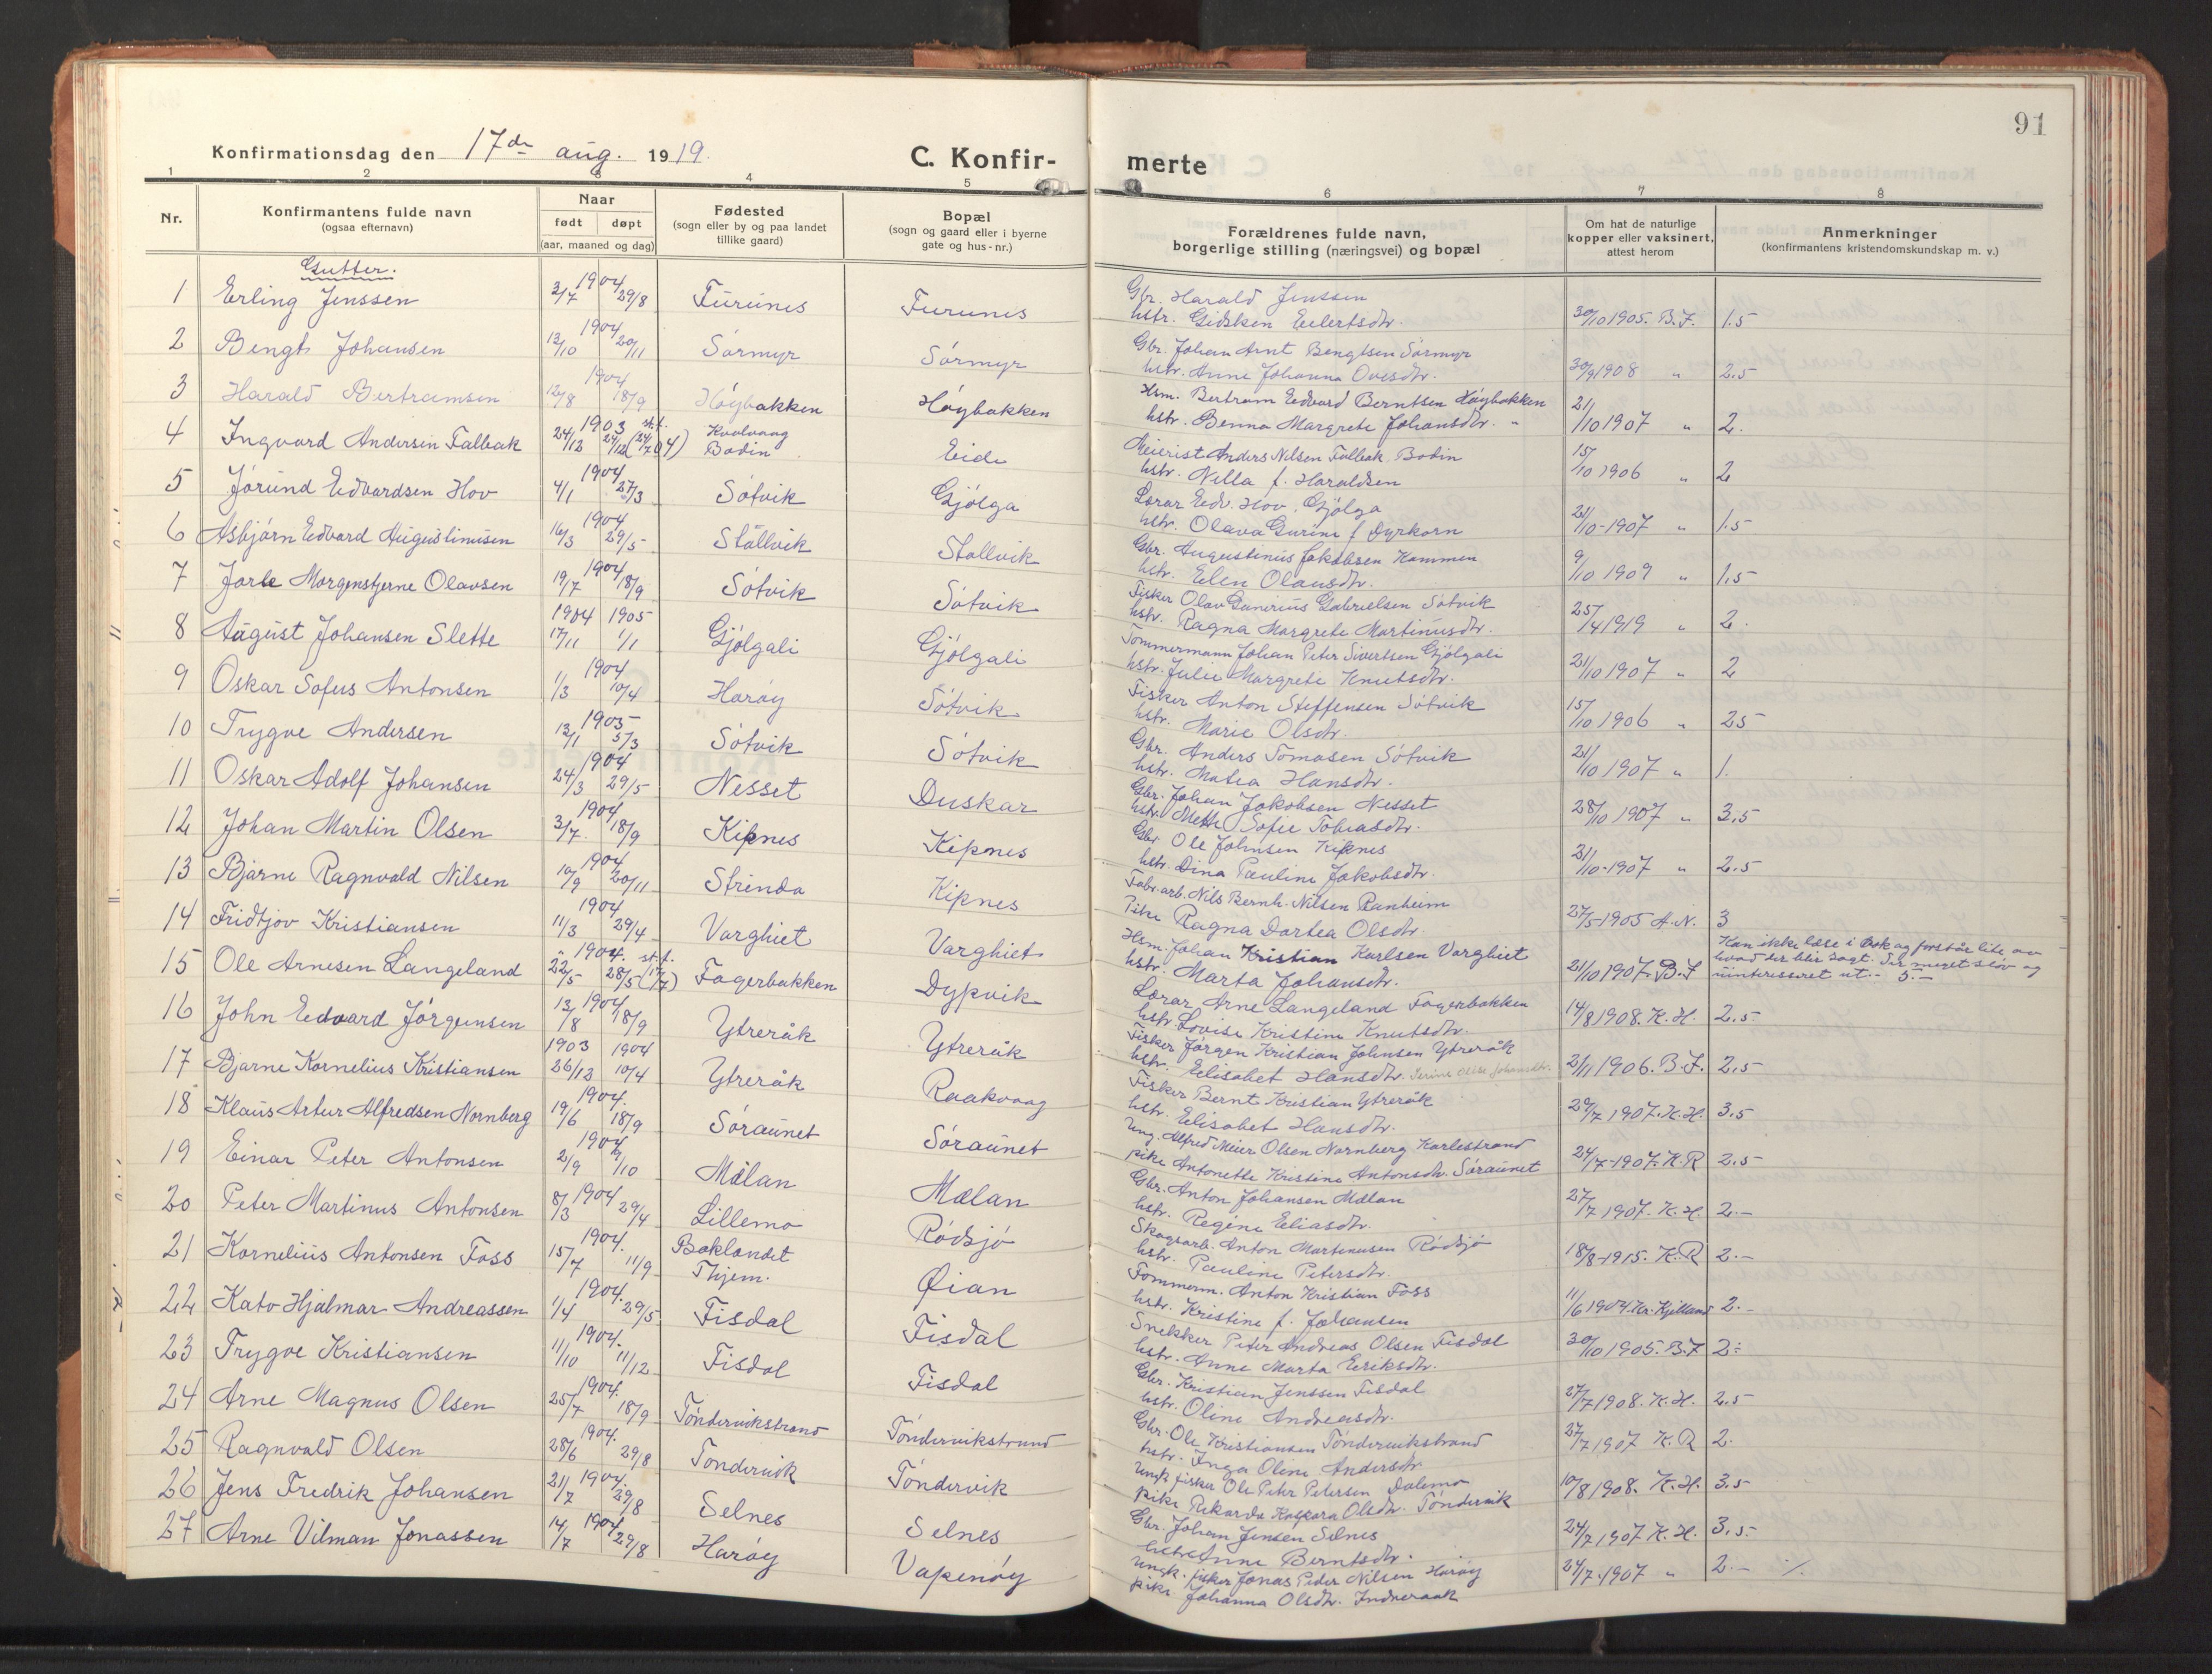 91
Konfirmationsdag den 17de aug. 1919.
C. Konfir-
merte
1 2 3 4 5 6 7 8
Nr.
Konfirmantens fulde navn
(ogsaa efternavn)
Naar
født døpt
(aar, maaned og dag)
Fødested
(sogn eller by og paa landet
tillike gaard)
Bopæl
(sogn og gaard eller i byerne
gate og hus-nr.)
Forældrenes fulde navn,
borgerlige stilling (næringsvei) og bopæl
Om hat de naturlige
kopper eller vaksinert,
attest herom
Anmerkninger
(konfirmantens kristendomskundskap m. v.)
Gutter.
1 Erling Jenssen 1904 3/7 29/8 Furunes Furunes
Gbr. Harald Jenssen
hstr. Gidsken Eilertsdtr. 30/10 1905. B.F. 1.5
2 Bengt Johansen 1904 13/10 20/11 Sørmyr Sørmyr
Gbr. Johan Arnt Bengtsen Sørmyr
hstr. Anne Johanna Ovesdtr. 30/9 1908 " 2.5
3 Harald Bertramsen 1904 12/8 18/9 Høybakken Høybakken
Hsm. Bertram Edvard Berntsen Høybakken
hstr. Benna Margrete Johansdtr. " 21/10 1907 " 2.
4 Ingvard Andersen Falbak 1903 24/12 st.f. 24/12 (24/7 04) Kvalvaag Bodin Eide
Meierist Anders Nilsen Falbak Bodin
hstr. Nella f. Haraldsen 15/10 1906 " 2
5 Jørund Edvardsen Hov 1904 4/1 27/3 Søtvik Gjølga
Lærar Edv. Hov, Gjølga
hstr. Olava Gurine f Dyrkorn 21/10-1907 " 1.5
6 Asbjørn Edvard Augustinusen 1904 16/3 29/5 Stallvik Stallvik
Gbr. Augustinus Jakobsen Hammen
hstr. Elen Olausdtr. 9/10 1909 " 1.5
7 Jarle Morgenstjerne Olavsen 1904 19/7 18/9 Søtvik Søtvik
Fisker Olav Gunerius Gabrielsen Søtvik
hstr. Ragna Margrete Martinusdtr. 25/4 1919 " 2.
8 August Johansen Slette 1904 17/11 1905 1/1 Gjølgali Gjølgali
Tømmermann Johan Peter Sivertsen Gjølgali
hstr. Julie Margrete Knutsdtr. 21/10 1907 " 2
9 Oskar Sofus Antonsen 1904 11/3 10/4 Harøy Søtvik
Fisker Anton Steffensen Søtvik
hstr. Marie Olsdtr. 15/10 1906 " 25
10 Trygve Andersen 1905 13/1 5/3 Søtvik Søtvik
Gbr. Anders Tomasen Søtvik
hstr. Matea Hansdtr. 21/10 1907 " 1.
11 Oskar Adolf Johansen 1904 24/3 29/5 Nesset Duskar
Gbr. Johan Jakobsen Nesset
hstr. Mette Sofie Tobiasdtr. 28/10 1907 " 3.5
12 Johan Martin Olsen 1904 3/7 18/9 Kipnes Kipnes
Gbr Ole Johnsen Kipnes
hstr. Dina Pauline Jakobsdtr. 21/10-1907 " 2.5
13 Bjarne Ragnvald Nilsen 1904 10/9 20/11 Strinda Kipnes
Fabr.arb. Nils Bernh. Nilsen Ranheim
Pike Ragna Dortea Olsdtr 27/5-1905 A.N. 3
14 Fridtjov Kristiansen 1904 11/3 29/4 Varghiet Varghiet
Hsm. Johan Kristian Karlsen Varghiet
hstr. Marta Johansdtr. 21/10 1907. B.F
Kan ikke læse i bok og forstår lite av
hvad der blir sagt. Ser meget sløv og
uinteresseret ut.- 5.-
15 Ole Arnesen Langeland 1904. 22/5 st.f. 28/5 (17/7) Fagerbakken Dypvik
Lærar Arne Langeland Fagerbakken
hstr. Lovise Kristine Knutsdtr. 14/8 1908. K.H. 2.5
16 John Edvard Jørgensen 1904 13/8 18/9 Ytreråk Ytreråk
Fisker Jørgen Kristian Johnsen Ytreråk
hstr. Elisabet Hansdtr. 21/11 1906. B.F. 2.5
17 Bjarne Kornelius Kristiansen 1903 26/12 1904 10/4 Ytreråk Raakvaag
Fisker Bernt Kristian Ytreråk
hstr. Elisabet Hansdtr. 29/7 1907. K.H. 3.5
18 Klaus Artur Alfredsen Nornberg 1904. 19/6 18/9 Søraunet Søraunet
Ung. Alfred Meier Olsen Nornberg Karlestrand
pike Antonette Kristine Antonsdtr. Søraunet 24/7-1907. K.R 2.5
19 Einar Peter Antonsen 1904 2/9 2/10 Mælan Mælan
Gbr. Anton Johansen Mælan
hstr. Regine Eliasdtr. 27/7 1907. K.H. 2.-
20 Peter Martinus Antonsen 1904. 8/3 29/4 Lillemo Rødsjø
Skogsarb. Anton Martinusen Rødsjø
hstr. Pauline Petersdtr. 18/8-1915. K.R 2.-
21 Kornelius Antonsen Foss 1904. 15/7 11/9 Baklandet Thjem. Øian
Tømmerm. Anton Kristian Foss
hstr. Kristine f. Johansen 11/6 1904. Kr. Kjelland 2.-
22 Kato Hjalmar Andreassen 1904. 1/4 29/5 Fisdal Fisdal
Snekker Peter Andreas Olsen Fisdal
hstr. Anne Marta Eriksdtr. 30/10 1905. B.F 2.-
23 Trygve Kristiansen 1904. 11/10 11/12 Fisdal Fisdal
Gbr. Kristian Jenssen Fisdal
hstr. Oline Andreasdtr. 27/7 1908. K.H. 2.5
24 Arne Magnus Olsen 1904. 25/7 18/9 Tøndervikstrand Tøndervikstrand
Gbr. Ole Kristiansen Tøndervikstrand
hstr. Inga Oline Andersdtr 27/7 1907 K.R 2.
25 Ragnvald Olsen 1904. 28/6 29/8 Tøndervik Tøndervik
Ungk. fisker Ole Peter Petersen Dalemo
pike Rikarda Kaspara Olsdtr. Tøndervik 10/8 1908. K.H. 3.5
26 Jens Fredrik Johansen 1904. 21/7 29/8 Selnes Selnes
Gbr. Johan Jensen Selnes
hstr Anne Berntsdtr. 24/7 1907 K.H. 3.5-
27 Arne Vilman Jonassen 1904 14/7 29/8 Harøy Vapenøy
Ungk. fisker Jonas Peder Nilsen Harøy
pike Johanna Olsdtr. Indreraak 24/7.1907 " 2.- ·/.